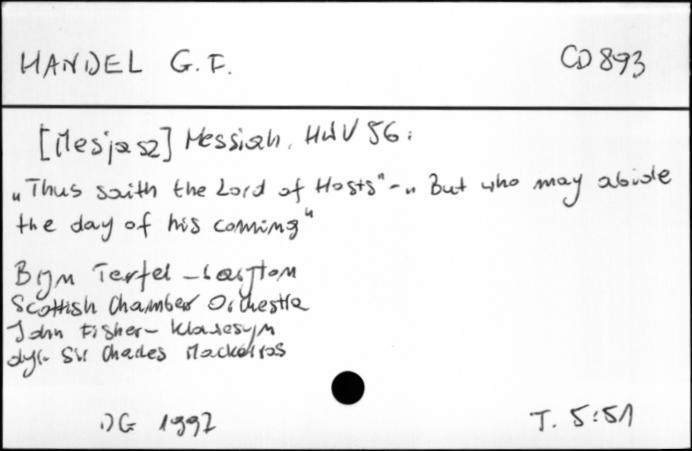 HANDEL G.F. CD 893
[Mesjasz] Messiah, HWV 56:
„Thus saith the Lord of Hosts" - „But who may abide
the day of his coming"
Bryn Terfel - baryton
Scottish Chamber Orchestra
John Fisher - klawesyn
dyr. Sir Charles Mackerras
DG 1997 T. 5:51